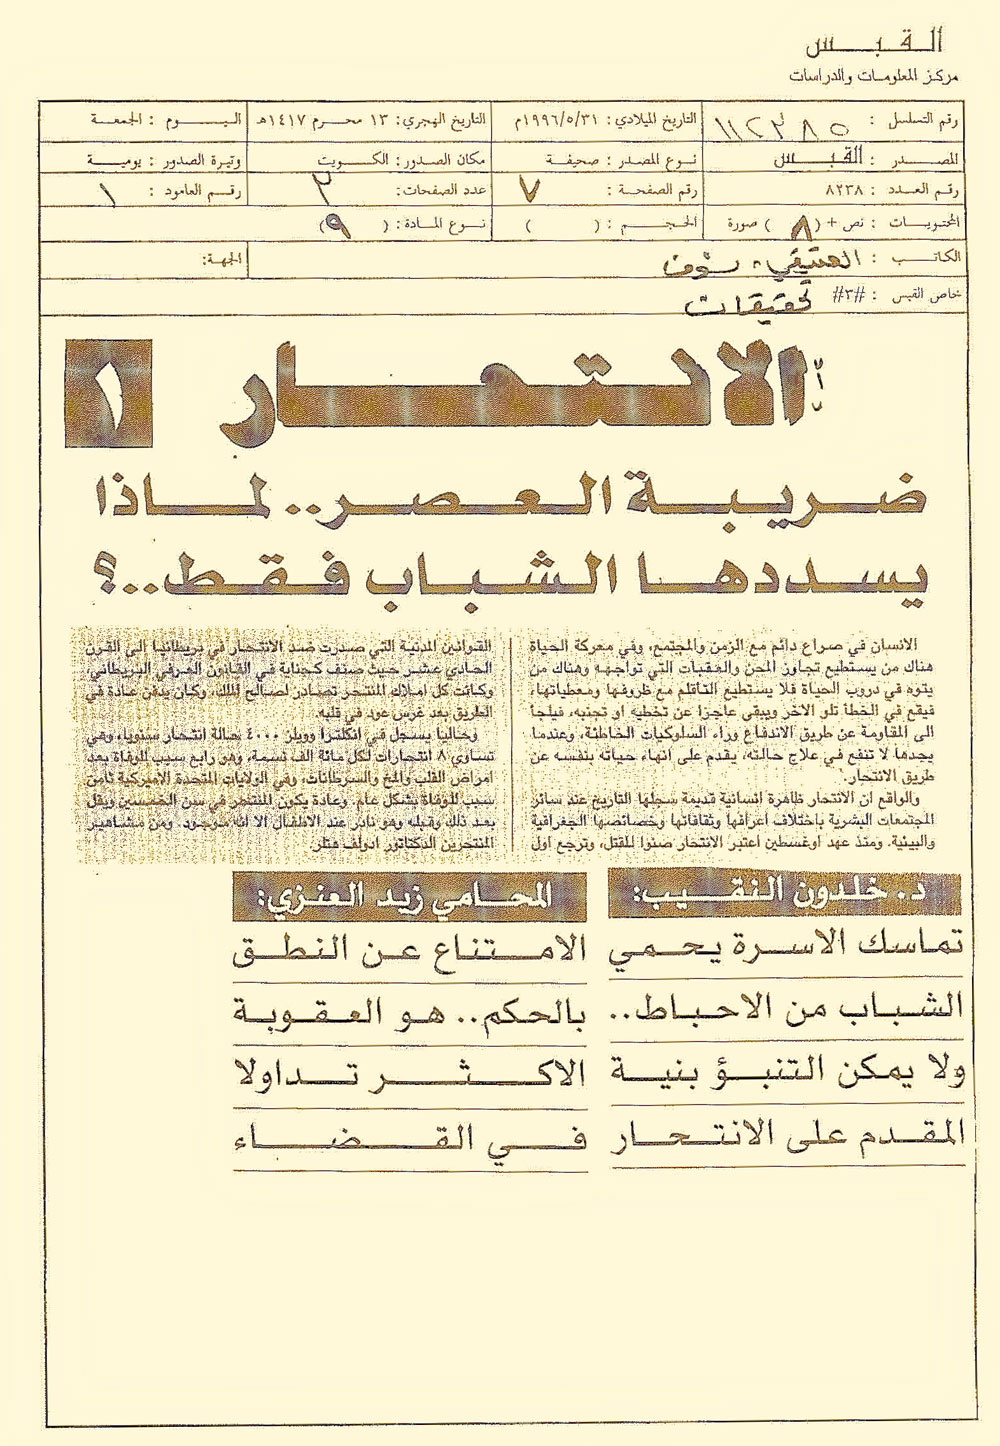 القبس
مركز المعلومات والدراسات
رقم التسلسل : ١١٢٣٨٥ التاريخ الميلادي: ١٩٩٦/٥/٣١م التاريخ الهجري: ١٣ محرم ١٤١٧هـ اليوم : الجمعة
المصدر : القبس نوع المصدر : صحيفة مكان الصدور: الكويت وتيرة الصدور : يومية
رقم العدد : ٨٢٣٨ رقم الصفحة : ٧ عدد الصفحات: ٣ رقم العامود : ١
المحتويات : نص + (٨) صورة الحجم : ( ) نوع المادة: (٩)
الكاتب : العتيقي، الجهة:
خاص القبس : #٣# تحقيقات
الانتحار ١
ضريبة العصر.. لماذا
يسددها الشباب فقط..؟
الانسان في صراع دائم مع الزمن والمجتمع، وفي معركة الحياة
هناك من يستطيع تجاوز المحن والعقبات التي تواجهه وهناك من
يتوه في دروب الحياة فلا يستطيع التاقلم مع ظروفها ومعطياتها،
فيقع في الخطأ تلو الاخر ويبقى عاجزا عن تخطيه او تجنبه، فيلجأ
الى المقاومة عن طريق الاندفاع وراء السلوكيات الخاطئة، وعندما
يجدها لا تنفع في علاج حالته، يقدم على انهاء حياته بنفسه عن
طريق الانتحار.
والواقع ان الانتحار ظاهرة انسانية قديمة سجلها التاريخ عند سائر
المجتمعات البشرية باختلاف أعرافها وثقافاتها وخصائصها الجغرافية
والبيئية. ومنذ عهد اوغسطين أعتبر الانتحار صنوا للقتل، وترجع اول
القوانين المدنية التي صدرت ضد الانتحار في بريطانيا الى القرن
الحادي عشر حيث صنف كجناية في القانون العرفي البريطاني،
وكانت كل املاك المنتحر تصادر لصالح الملك، وكان يدفن عادة في
الطريق بعد غرس عود في قلبه.
وحاليا يسجل في انكلترا وويلز ٤٠٠٠ حالة انتحار سنويا، وهي
تساوي ٨ انتحارات لكل مائة الف نسمة، وهو رابع سبب للوفاة بعد
امراض القلب والمخ والسرطانات، وفي الولايات المتحدة الاميركية ثامن
سبب للوفاة بشكل عام. وعادة يكون المنتحر في سن الخمسين ويقل
بعد ذلك وقبله وهو نادر عند الاطفال الا انه موجود. ومن مشاهير
المنتحرين الدكتاتور ادولف هتلر.
د. خلدون النقيب:
تماسك الاسرة يحمي
الشباب من الاحباط..
ولا يمكن التنبؤ بنية
المقدم على الانتحار
المحامي زيد العنزي:
الامتناع عن النطق
بالحكم.. هو العقوبة
الاكثر تداولا
في القضاء